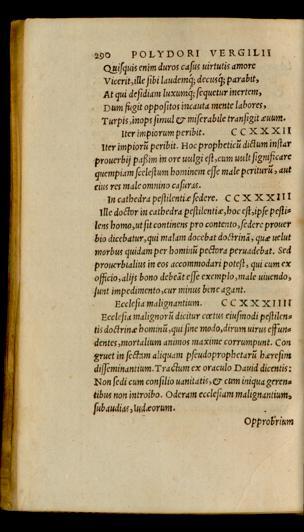 290 POLYDORI VERGILII
Quisquis enim duros casus uirtutis amore
Vicerit, ille sibi laudemq; decusq; parabit,
At qui desidiam luxumq; sequetur inertem,
Dum fugit oppositos incauta mente labores,
Turpis, inops simul & miserabile transigit æuum.
Iter impiorum peribit. CCXXXII
Iter impiorũ peribit. Hoc propheticũ dictum instar
prouerbij passim in ore uulgi est, cum uult significare
quempiam scelestum hominem esse male periturũ, aut
eius res male omnino casuras.
In cathedra pestilentiæ sedere. CCXXXIII
Ille doctor in cathedra pestilentiæ, hoc est, ipse pesti-
lens homo, ut sit continens pro contento, sedere prouer
bio dicebatur, qui malam docebat doctrinã, quæ uelut
morbus quidam per hominũ pectora peruadebat. Sed
prouerbialius in eos accommodari potest, qui cum ex
officio, alijs bono debeãt esse exemplo, male uiuendo,
sunt impedimento, cur minus bene agant.
Ecclesia malignantium. CCXXXIIII
Ecclesia malignorũ dicitur cœtus eiusmodi pestilen-
tis doctrinæ hominũ, qui sine modo, dirum uirus effun-
dentes, mortalium animos maxime corrumpunt. Con
gruet in sectam aliquam pseudoprophetarũ hæresim
disseminantium. Tractum ex oraculo Dauid dicentis:
Non sedi cum consilio uanitatis, & cum iniqua geren-
tibus non introibo. Oderam ecclesiam malignantium,
subaudias, Iudæorum.
Opprobrium